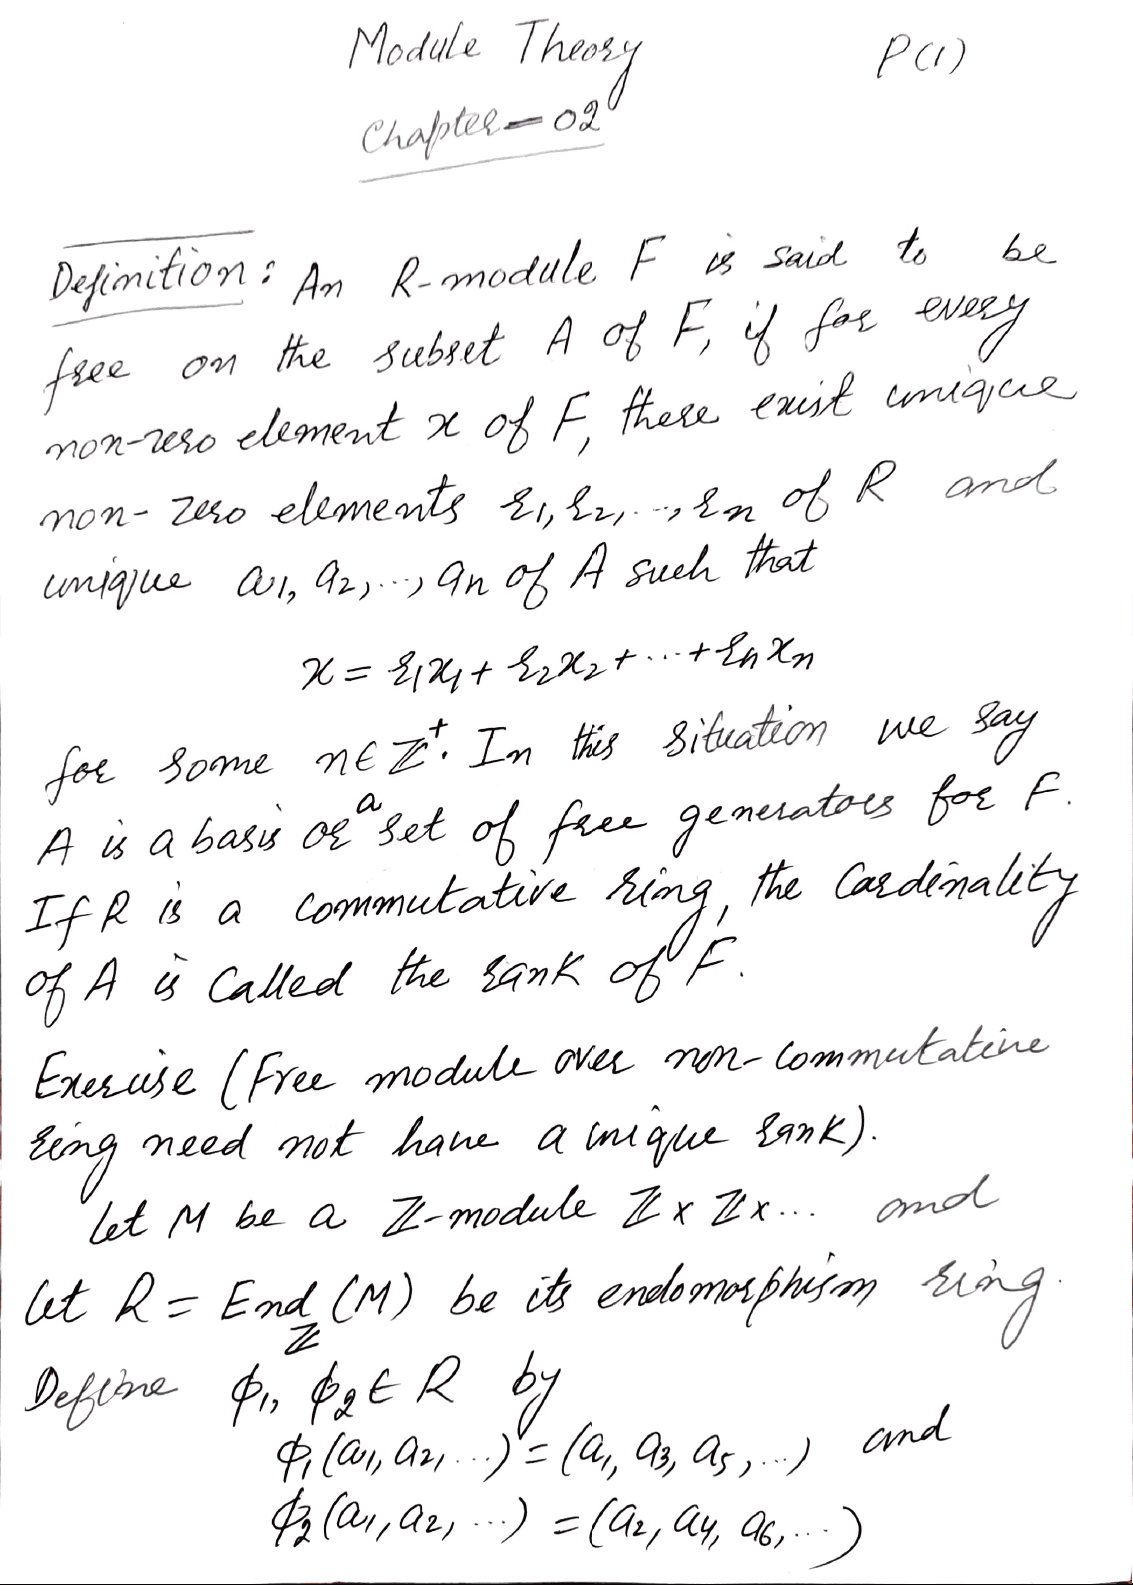 Module Theory P(1)
Chapter-02
Definition: An R-module F is said to be
free on the subset A of F, if for every
non-zero element x of F, there exist unique
non-zero elements r₁, r₂, .., rₙ of R and
unique a₁, a₂, .., aₙ of A such that
x = r₁x₁ + r₂x₂ + ... + rₙxₙ
for some n ∈ ℤ⁺. In this situation we say
A is a basis or a set of free generators for F.
If R is a commutative ring, the Cardinality
of A is Called the rank of F.
Exercise (Free module over non-commutative
ring need not have a unique rank).
Let M be a ℤ-module ℤ x ℤ x... and
let R = End_ℤ(M) be its endomorphism ring.
Define ϕ₁, ϕ₂ ∈ R by
ϕ₁(a₁, a₂, ...) = (a₁, a₃, a₅, ...) and
ϕ₂(a₁, a₂, ...) = (a₂, a₄, a₆, ...)